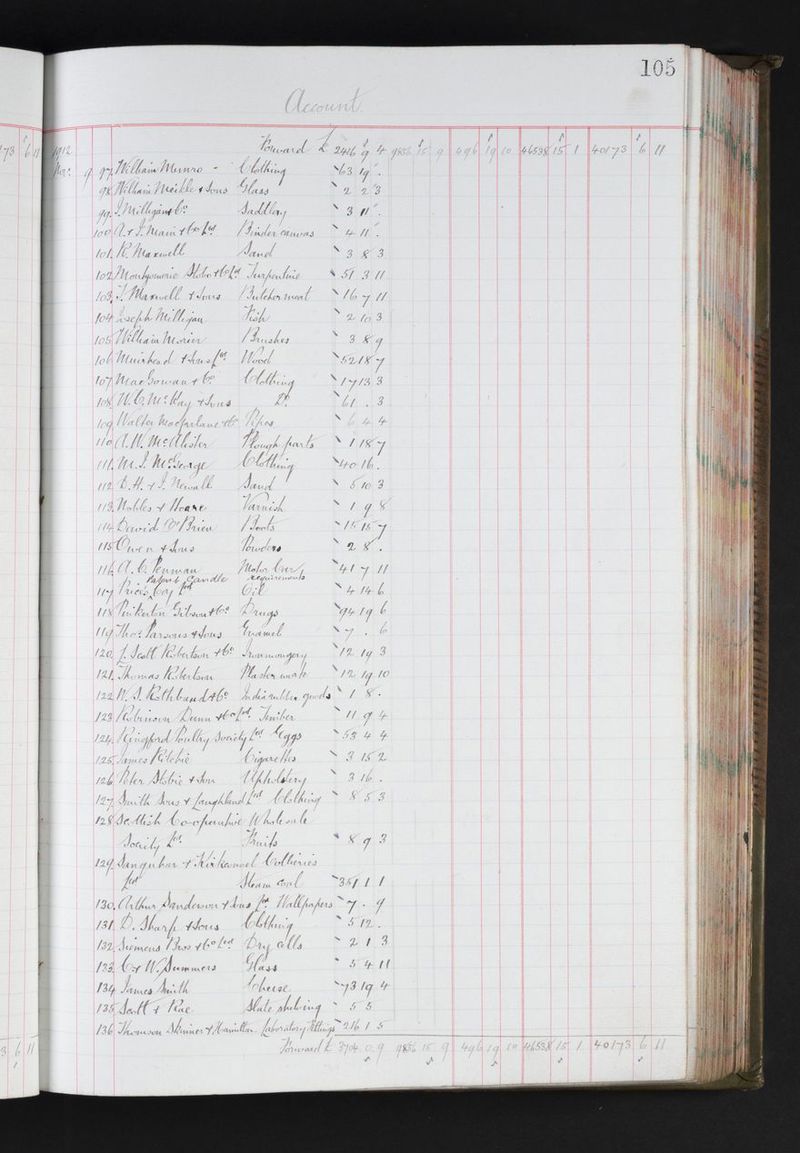 105
Account
1912 Forward £ 2416 9 4 9856 15 9 496 19 10 46538 15 1 40173 6 11
Nov. 9 97. William Munro - Clothing 63 19 .
98 William Meikle & Sons Glass 2 2 3
99. J. Milligan & Co Saddlery 3 11 .
100 A. & J. Main & Co Ltd Binder canvas 4 11 .
101. R. Maxwell Sand 3 8 3
102 Montgomerie Stobo & Co Ltd Turpentine 51 3 11
103. J. Maxwell & Sons Butcher meat 16 7 11
104 Joseph Milligan Fish 2 10 3
105 William Brushes 3 8 9
106 Muirhead & Sons Ltd Wood 52 18 7
107 MacGowan & Co Clothing 17 13 3
108 W. G. McKay & Sons Do 61 . 3
109 Walter Macfarlane & Co Pipes 6 4 4
110 A. W. McAlister Plough parts 1 18 7
111. M. J. McGeorge Clothing 40 16 .
112 D. H. & J. Newall Sand 5 10 3
113. Nobles & Hoare Varnish 1 9 8
114 David O'Brien Boots 15 15 7
115 Owen & Sons Powders 2 8 .
116 A. C. Penman Motor Car requirements 41 7 11
117 Price's Patent Candle Coy Ltd Oil 4 14 6
118 Pinkerton Gibson & Co Drugs 94 19 6
119 Thos. Parsons & Sons Enamel 7 . 6
120 J. Scott Robertson & Co Ironmongery 12 19 3
121. Thomas Robertson Plaster work 12 19 10
122 W. S. Rothband & Co India rubber goods 1 8 .
123 Robinson Dunn & Co Ltd Timber 11 9 4
124. Ringford Poultry Society Ltd Eggs 53 4 4
125 James Ritchie Cigarettes 3 15 2
126 Peter Stobie & Son Upholstery 3 16 .
127 Smith Sons & Laughland Ltd Clothing 8 5 3
128 Scottish Co-operative Wholesale
Society Ltd Fruits 8 9 3
129 Sanquhar & Kirkconnel Collieries
Ltd Steam coal 351 1 1
130. Arthur Sanderson & Sons Ltd Wallpapers 7 . 9
131. D. Sharp & Sons Clothing 5 12 .
132 Siemens Bros & Co Ltd Dry cells 2 1 3
133. C. & W. Summers Glass 5 4 11
134 James Smith Cheese 73 19 4
135 Scott & Rae Slate 5 5
136 Thomson Skinner & Hamilton Laboratory fittings 216 1 5
Forward £ 3704 0 9 9856 15 9 496 19 10 46538 15 1 40173 6 11